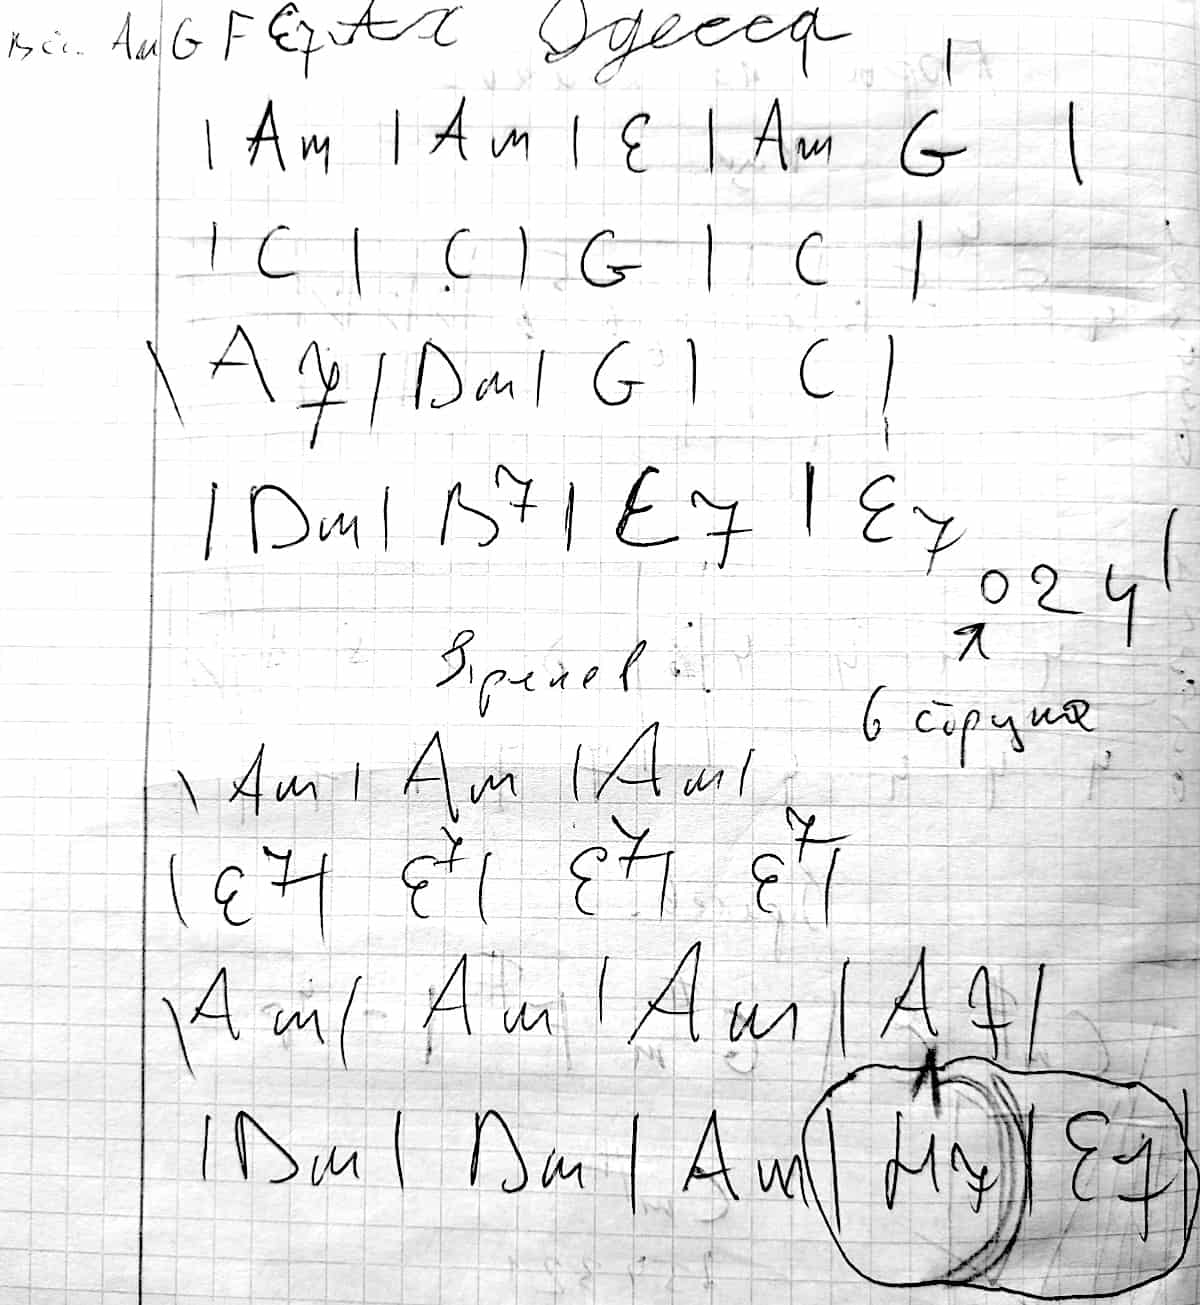 Вст. Am G F E7 Ах Одесса
| Am | Am | E | Am G |
| C | C | G | C |
\ A7 | Dm | G | C |
| Dm | B7 | E7 | E7 |
0 2 4
6 струна
Припев:
\ Am | Am | Am |
| E7 | E7 | E7 | E7 |
\ Am | Am | Am | A7 |
| Dm | Dm | Am | H7 | E7 |